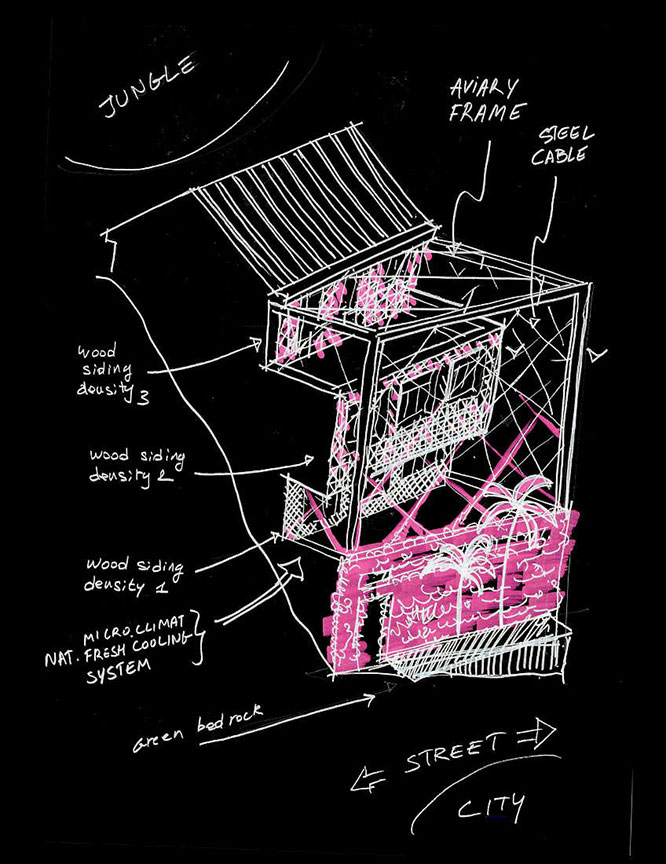 JUNGLE
AVIARY
FRAME
STEEL
CABLE
wood
siding
density 3
wood siding
density 2
wood siding
density 1
MICRO.CLIMAT
NAT. FRESH COOLING
SYSTEM
Green bedrock
STREET
CITY